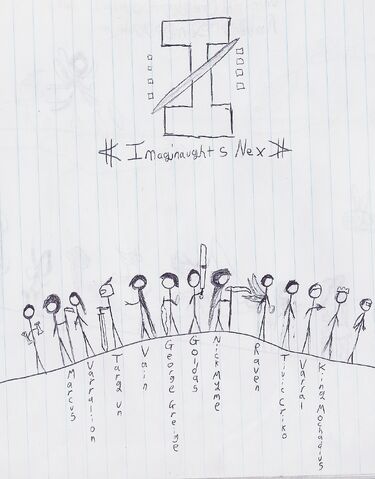 I
Imaginaughts Nex
Marcus
Varralion
Targun
Vain
George Greige
Goldas
Nick Myme
Raven
Tivic Criko
Varral
King Mochadius